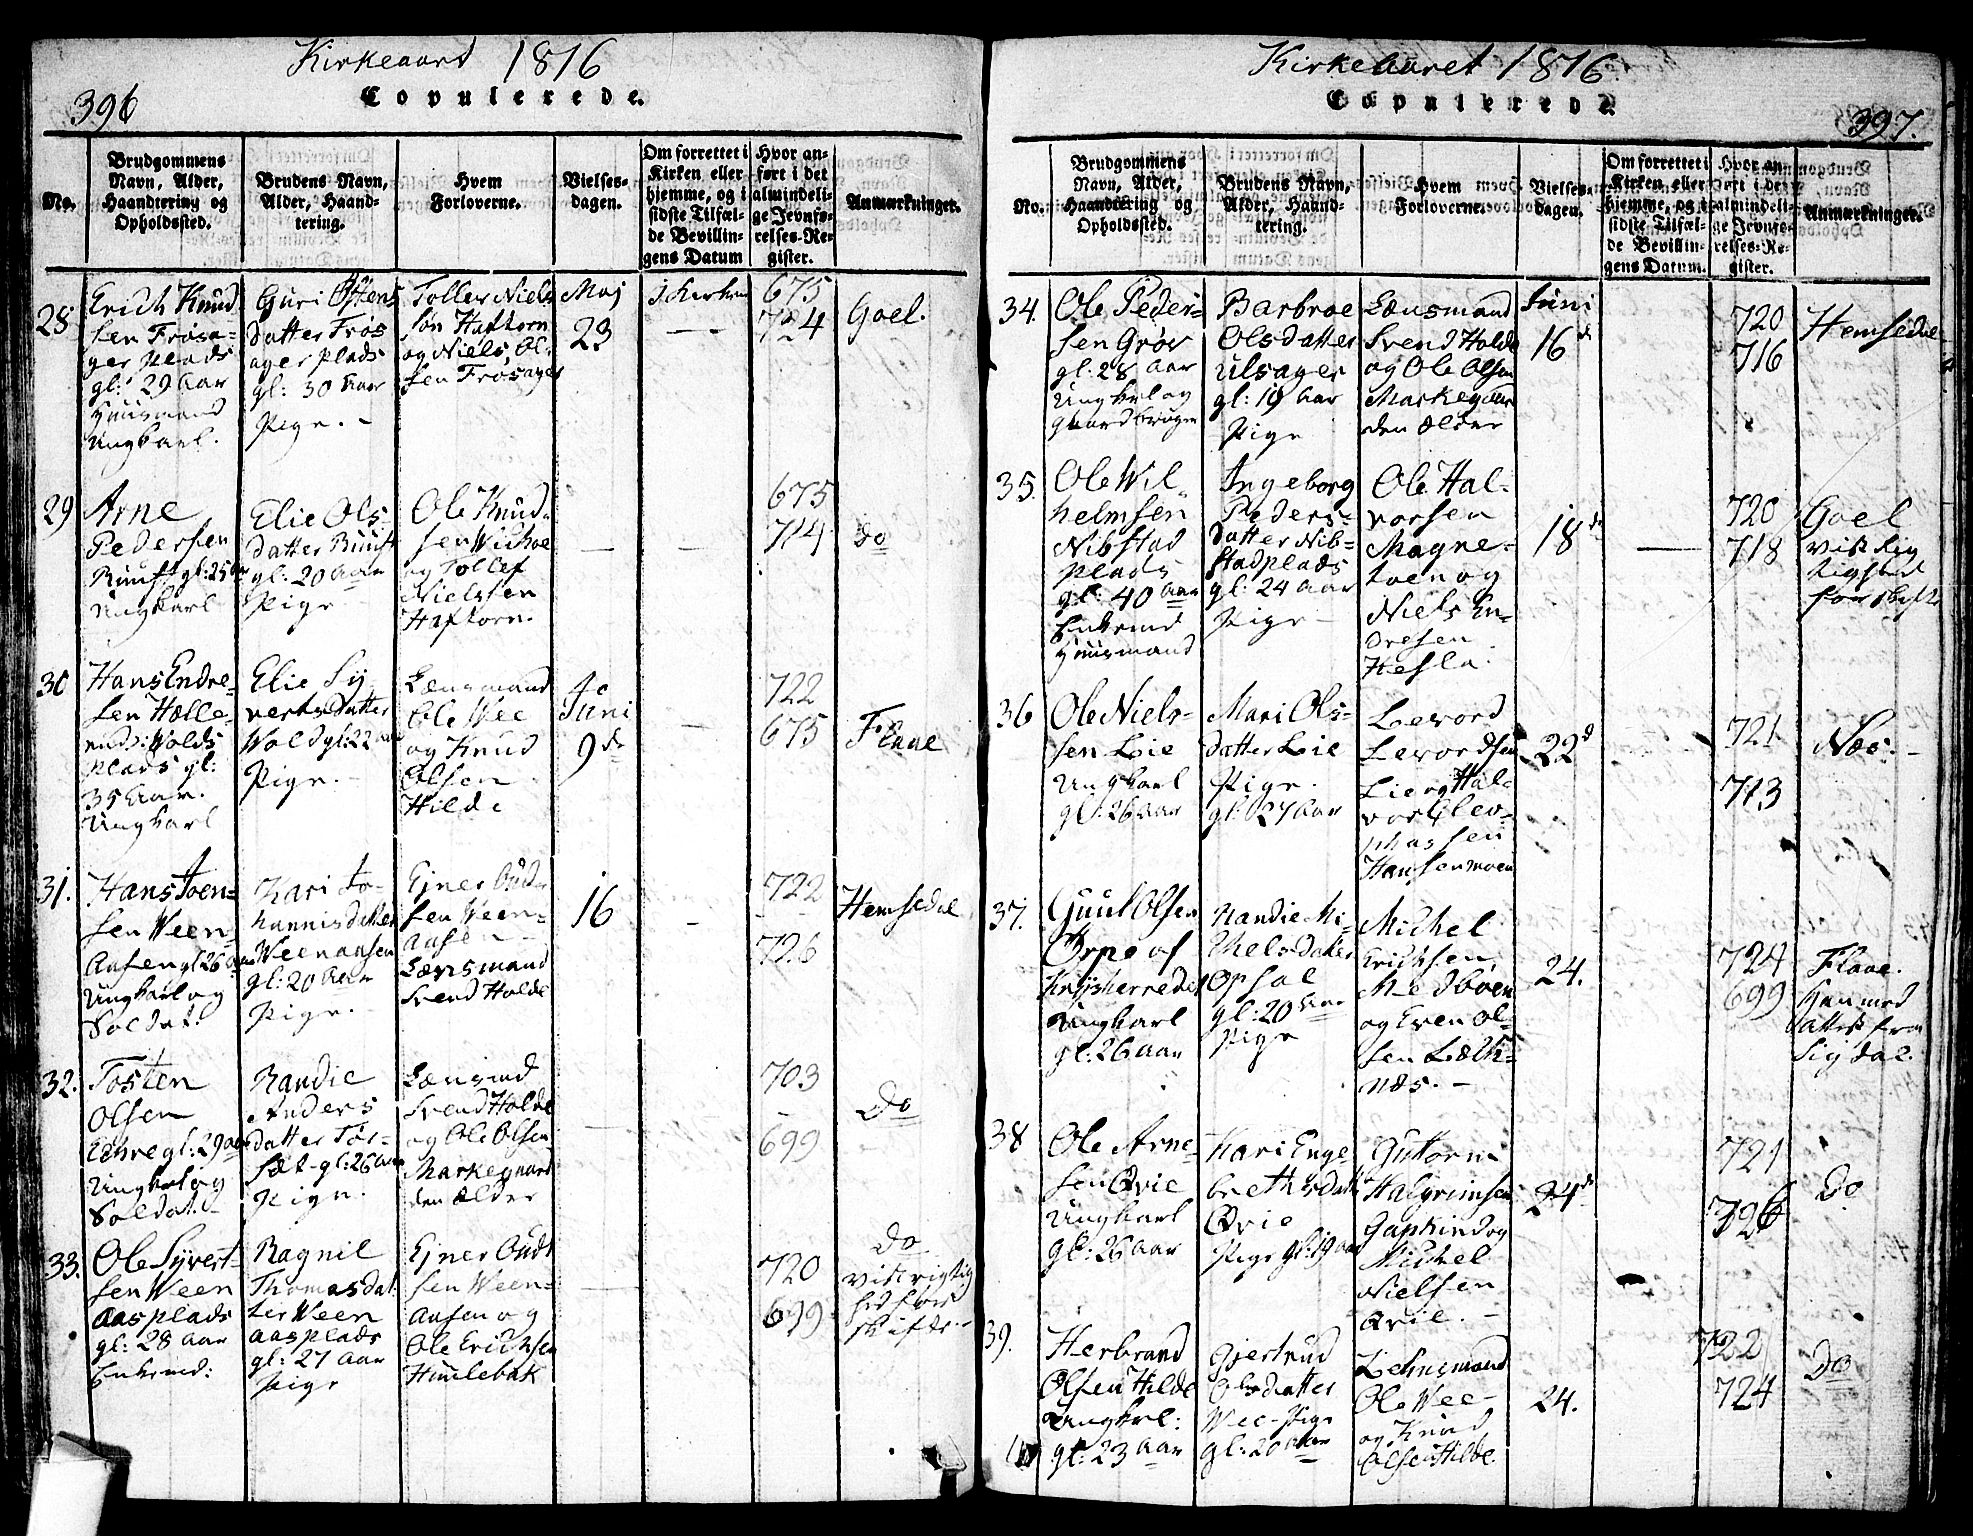 Kirkeaaret 1816
396
Copulerede.
No.
Brudgommens
Navn, Alder,
Haandtering og
Opholdssted.
Brudens Navn,
Alder, Haand-
tering.
Hvem
Forloverne.
Vielses-
dagen.
Om forrettet i
Kirken eller
hjemme, og i
sidste Tilfæl-
de Bevillin-
gens Datum
Hvor an-
ført i det
almindeli-
ge Jevnfø-
relses-Re-
gister.
Anmærkninger.
28
Erich Knud
sen Frøsa-
ger plads
gl: 29 Aar
Huusmand
Ungkarl.
Guri Ostens
datter Frøs
ager plads
gl: 30 Aar
Pige. -
Tollef Niels
søn Haftorn
og Niels Ol-
sen Frøsager
Maj
23
I Kirken
675
724
Goel.
29
Arne
Pedersen
Ruust gl: 25 Aar
Ungkarl
Elie Ols-
datter Ruust
gl: 20 Aar
Pige
Ole Knud-
sen
og Tollef
Nielssen
Haftorn.
675
714
do
30
Hans Endre-
sen Hælle-
rud: Wolds
plads gl:
35 Aar.
Ungkarl
Elie Sy-
verts datter
Wold gl: 22 Aar
Pige.
Lænsmand
Ole Wee
og Knud
Olsen
Hilde
Juni
9de
722
675
Flaae
31.
Hans Joen-
sen Ween-
Aasen gl 26 Aar
Ungkarl og
Soldat.
Kari Jo-
hannisdatter
Weenaasen
gl: 20 Aar
Pige.
Ejner Gud-
sen Ween-
aasen
Lænsmand
Svend Holde
16
722
726
Hemsedal
32.
Tosten
Olsen
Echre gl: 29 Aar
Ungkarl og
Soldat.
Randie
Anders
datter Tør-
sæt gl: 26 Aar
Pige.
Lænsmd
Svend Holde
og Ole Olsen
Markegaard
den Ælder
703
699
Do
33.
Ole Syvert-
sen Ween
aasplads
gl: 28 Aar
Enkemd:
Ragnil
Thomasdat-
ter Ween
aasplads
gl: 27 Aar
Pige
Ejner Guds
sen Ween-
aasen og
Ole Erichsen
Huulebak
720
699
Do
vist rigtig
hed for
skifte -
Kirkeaaret 1816.
Copulerede.
397.
No.
Brudgommens
Navn, Alder,
Haandtering og
Opholdssted.
Brudens Navn,
Alder, Haand-
tering.
Hvem
Forloverne.
Vielses-
dagen.
Om forrettet i
Kirken eller
hjemme, og i
sidste Tilfæl-
de Bevillin-
gens Datum.
Hvor an-
ført i det
almindeli-
ge Jevnfø-
relses-Re-
gister.
Anmærkninger.
34.
Ole Peder-
sen Grøv
gl: 28 Aar
Ungkarl og
Gaardbruger
Barbroe
Olsdatter
Ulsager
gl: 19 Aar
Pige
Lænsmand
Svend Holde
og Ole Olsen
Markegaar
den Ælder
Juni
16d
720
716
Hemsedal
35.
Ole Wil-
helmsen
Nibstad
plads
gl: 40 Aar
Enkemd
Huusmand
Ingeborg
Peders-
datter Nib-
stadplads
gl: 24 Aar
Pige -
Ole Hal-
vorsen
Magne-
toen og
Niels En-
dresen
Hesla.
18de
720
718
Goel
vist Rig
tighed
for skifte
36
Ole Niels-
sen Lie
Ungkarl
gl: 26 Aar
Mari Ols-
datter Lie
Pige.
gl: 27 Aar
Levord
Levordsen
Lie og Hal-
vor Elev-
phassen
Hansemoen
22d
721
713
Næs. -
37.
Guul Olsen
Ørpe af
Krysherredet
Ungkarl
gl: 26 Aar
Randie Mi-
chelsdatter
Opsal
gl: 20 Aar
Pige
Michel
Erichsen
Medboen
og Even Ol-
sen Læth-
næs. -
24.
724
699
Flaae.
Han med
attest fra
Sigdal.
38
Ole Arne-
sen Qvie
Ungkarl
gl: 26 Aar
Kari Enge-
brethsdatter
Qvie
Pige gl: 19 Aar
Guttorm
Halgrimsen
Gapkind og
Michel
Nielsen
Qvie. -
24d
721
726
Do
39.
Herbrand
Olsen Hilde
Ungkarl:
gl: 23 Aar
Gjertrud
Olsdatter
Wee - Pige
gl: 20 Aar
Lehnsmand
Ole Wee -
og Knud
Olsen Hilde.
24.
722
724
Do